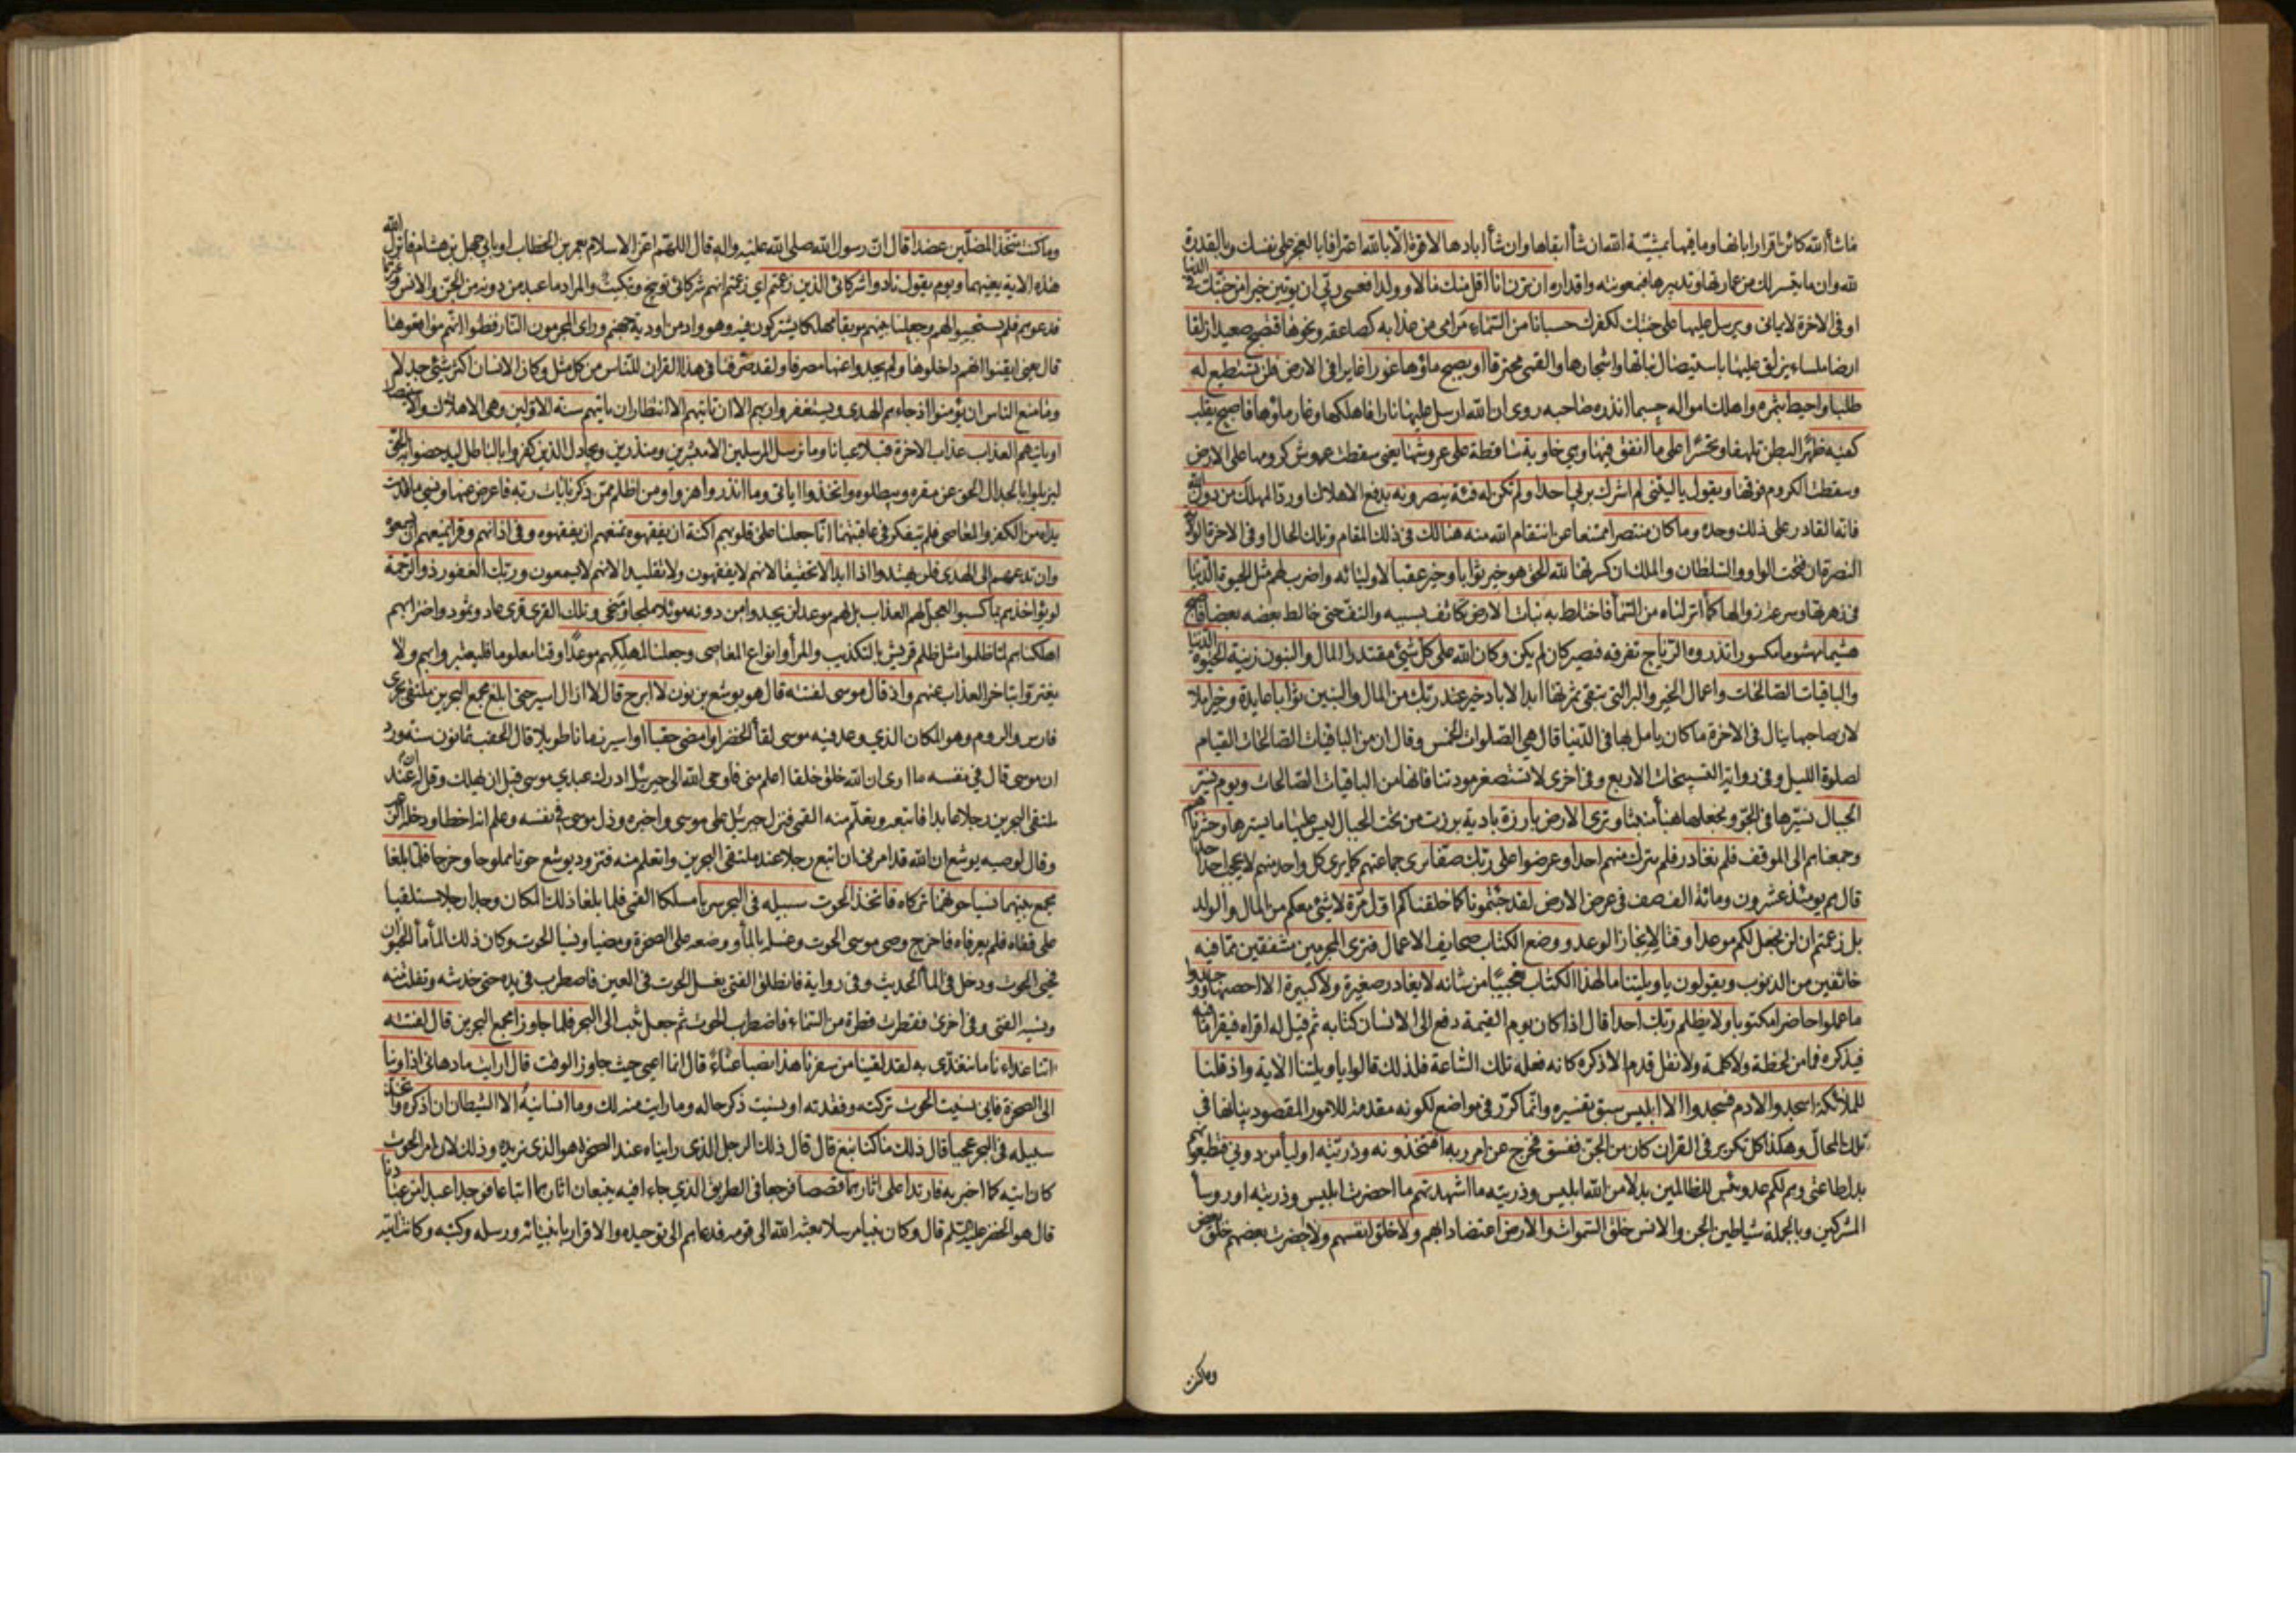 ماشاء الله كائن اقرارا بانها وما فيها بمشية الله ان شاء ابقاها وان شاء ابادها لا قوة الا بالله اعترافا بالعجز على نفسك وبالقدرة
لله وان ما تيسر لك من عمارتها وتدبيرها فبمعونته واقداره ان ترن انا اقل منك مالا وولدا فعسى ربي ان يؤتين خيرا من جنتك في الدنيا
او في الاخرة لايماني ويرسل عليها على جنتك لكفرك حسبانا من السماء مرامي من عذابه كصاعقة ونحوها فتصبح صعيدا زلقا
ارضا ملساء يزلق عليها باستيصال نباتها واشجارها والقمي محترقا او يصبح ماؤها غورا غايرا في الارض فلن تستطيع له
طلبا واحيط بثمره واهلك امواله حسبما انذره صاحبه روى ان الله ارسل عليها نارا فاهلكها وغار ماؤها فاصبح يقلب
كفيه ظهر البطن تلهفا وتحسرا على ما انفق فيها وهي خاوية ساقطة على عروشها يعني سقطت عروش كرومها على الارض
وسقطت الكروم فوقها ويقول يا ليتني لم اشرك بربي احدا ولم تكن له فئة ينصرونه بدفع الاهلاك او رد المهلك من دون الله
فانه القادر على ذلك وحده وما كان منتصرا ممتنعا عن انتقام الله منه هنالك في ذلك المقام وتلك الحال او في الاخرة الولاية
النصرة ان فتحت الواو والسلطان والملك ان كسرتها لله الحق هو خير ثوابا وخير عقبا لاوليائه واضرب لهم مثل الحيوة الدنيا
في زهرتها وسرعة زوالها كماء انزلناه من السماء فاختلط به نبات الارض تكاثف بسببه والتف حتى خالط بعضه بعضا فاصبح
هشيما مهشوما مكسورا تذروه الرياح تفرقه فصير كان لم يكن وكان الله على كل شيء مقتدرا المال والبنون زينة الحيوة الدنيا
والباقيات الصالحات واعمال الخير والبر التي تبقى ثمرتها ابدا لاباد خير عند ربك من المال والبنين ثوابا عايدة وخير املا
لان صاحبها ينال في الاخرة ما كان يامل بها في الدنيا قال هي الصلوات الخمس وقال ان من الباقيات الصالحات القيام
لصلوة الليل وفي رواية التسبيحات الاربع وفي اخرى لا تستصغر مودتنا فانها من الباقيات الصالحات ويوم نسير
الجبال نسيرها في الجو ونجعلها هباء منبثا وترى الارض بارزة بادية برزت من تحت الجبال ليس عليها ما يسترها وحشرناهم
وجمعناهم الى الموقف فلم نغادر فلم نترك منهم احدا وعرضوا على ربك صفا نرى جماعتهم كما يرى كل واحد منهم لا يحجب احد احدا
قال هم يومئذ عشرون ومائة الف صف في عرض الارض لقد جئتمونا كما خلقناكم اول مرة لا شيء معكم من المال والولد
بل زعمتم ان لن نجعل لكم موعدا وقتا لانجاز الوعد ووضع الكتاب صحايف الاعمال فترى المجرمين مشفقين مما فيه
خائفين من الذنوب ويقولون يا ويلتنا مال هذا الكتاب تعجيبا من شانه لا يغادر صغيرة ولا كبيرة الا احصيها ووجدوا
ما عملوا حاضرا مكتوبا ولا يظلم ربك احدا قال اذا كان يوم القيمة دفع الى الانسان كتابه ثم قيل له اقراه فيقرا ما فيه
فيذكره فما من لحظة ولا كلمة ولا نقل قدم الا ذكره كانه فعله تلك الساعة فلذلك قالوا يا ويلتنا الاية واذ قلنا
للملائكة اسجدوا لادم فسجدوا الا ابليس سبق تفسيره وانما كرر في مواضع لكونه مقدمة للامور المقصود بيانها في
تلك المحال وهكذا كل تكرير في القران كان من الجن ففسق فخرج عن امر ربه افتتخذونه وذريته اولياء من دوني فتطيعونهم
بدل طاعتي وهم لكم عدو بئس للظالمين بدلا من الله ابليس وذريته ما اشهدتهم ما احضرت ابليس وذريته او رؤساء
المشركين وبالجملة شياطين الجن والانس خلق السموات والارض اعتضادا بهم ولا خلق انفسهم ولا احضرت بعضهم خلق بعض
وما كنت
وما كنت متخذ المضلين عضدا قال ان رسول الله صلى الله عليه واله قال اللهم اعز الاسلام بعمر بن الخطاب او بابي جهل بن هشام فانزل الله
هذه الاية يعنيهما ويوم يقول نادوا شركائي الذين زعمتم اي زعمتم انهم شركائي توبيخ وتبكيت والمراد ما عبد من دونه من الجن والانس وغيرهما
فدعوهم فلم يستجيبوا لهم وجعلنا بينهم موبقا مهلكا يشتركون فيه وهو واد من اودية جهنم وراى المجرمون النار فظنوا انهم مواقعوها
قال يعني ايقنوا انهم داخلوها ولم يجدوا عنها مصرفا ولقد صرفنا في هذا القران للناس من كل مثل وكان الانسان اكثر شيء جدلا
وما منع الناس ان يؤمنوا اذ جاءهم الهدى ويستغفروا ربهم الا ان تاتيهم الا انتظار ان ياتيهم سنة الاولين وهي الاهلاك والاستيصال
او ياتيهم العذاب عذاب الاخرة قبلا عيانا وما نرسل المرسلين الا مبشرين ومنذرين ويجادل الذين كفروا بالباطل ليدحضوا به الحق
ليزيلوا بالجدال الحق عن مقره ويبطلوه واتخذوا اياتي وما انذروا هزوا ومن اظلم ممن ذكر بايات ربه فاعرض عنها ونسي ما قدمت
يداه من الكفر والمعاصي فلم يتفكر في عاقبتهما انا جعلنا على قلوبهم اكنة ان يفقهوه تمنعهم ان يفقهوه وفي اذانهم وقرا يمنعهم ان يسمعوه
وان تدعهم الى الهدى فلن يهتدوا اذا ابدا لا تحقيقا لانهم لا يفقهون ولا تقليدا لانهم لا يسمعون وربك الغفور ذو الرحمة
لو يؤاخذهم بما كسبوا لعجل لهم العذاب بل لهم موعد لن يجدوا من دونه موئلا ملجا ومنجى وتلك القرى قرى عاد وثمود واضرابهم
اهلكناهم لما ظلموا مثل ظلم قريش بالتكذيب والمراء وانواع المعاصي وجعلنا لمهلكهم موعدا وقتا معلوما فليعتبروا بهم ولا
يغتروا بتاخر العذاب عنهم واذ قال موسى لفتيه قال هو يوشع بن نون لا ابرح قال لا ازال اسير حتى ابلغ مجمع البحرين ملتقى بحري
فارس والروم وهو المكان الذي وعد فيه موسى لقاء الخضر او امضي حقبا او اسير زمانا طويلا قال الحقب ثمانون سنة ورد
ان موسى قال في نفسه ما ارى ان الله خلق خلقا اعلم مني فاوحى الله الى جبرئيل ادرك عبدي موسى قبل ان يهلك وقل له ان عند
ملتقى البحرين رجلا عابدا فاتبعه وتعلم منه القمي فنزل جبرئيل على موسى واخبره وذل موسى في نفسه وعلم انه اخطا ودخله الرعب
وقال لوصيه يوشع ان الله قد امرني ان اتبع رجلا عند ملتقى البحرين واتعلم منه فتزود يوشع حوتا مملوحا وخرجا فلما بلغا
مجمع بينهما نسيا حوتهما تركاه فاتخذ الحوت سبيله في البحر سربا مسلكا القمي فلما بلغا ذلك المكان وجدا رجلا مستلقيا
على قفاه فلم يعرفاه فاخرج وصي موسى الحوت وغسله بالماء ووضعه على الصخرة ومضيا ونسيا الحوت وكان ذلك الماء ماء الحيوان
فحيي الحوت ودخل في الماء الحديث وفي رواية فانطلق الفتى يغسل الحوت في العين فاضطرب في يده حتى خدشه وتفلت منه
ونسيه الفتى وفي اخرى فقطرت قطرة من السماء فاضطرب الحوت ثم جعل يثب الى البحر فلما جاوزا مجمع البحرين قال لفتيه
اتنا غداءنا ما نتغذى به لقد لقينا من سفرنا هذا نصبا عناء قال انما اعيى حيث جاوز الوقت قال ارايت ما دهاني اذ اوينا
الى الصخرة فاني نسيت الحوت تركته وفقدته او نسيت ذكر حاله وما رايت منه لك وما انسانيه الا الشيطان ان اذكره واتخذ
سبيله في البحر عجبا قال ذلك ما كنا نبغ قال قال ذلك الرجل الذي رايناه عند الصخرة هو الذي نريده وذلك لان امر الحوت
كان ايته كما اخبر به فارتدا على اثارهما قصصا فرجعا في الطريق الذي جاءا فيه يتبعان اثارهما اتباعا فوجدا عبدا من عبادنا
قال هو الخضر عليه السلم قال وكان نبيا مرسلا بعثه الله الى قومه فدعاهم الى توحيده والاقرار بانبيائه ورسله وكتبه وكانت ايته